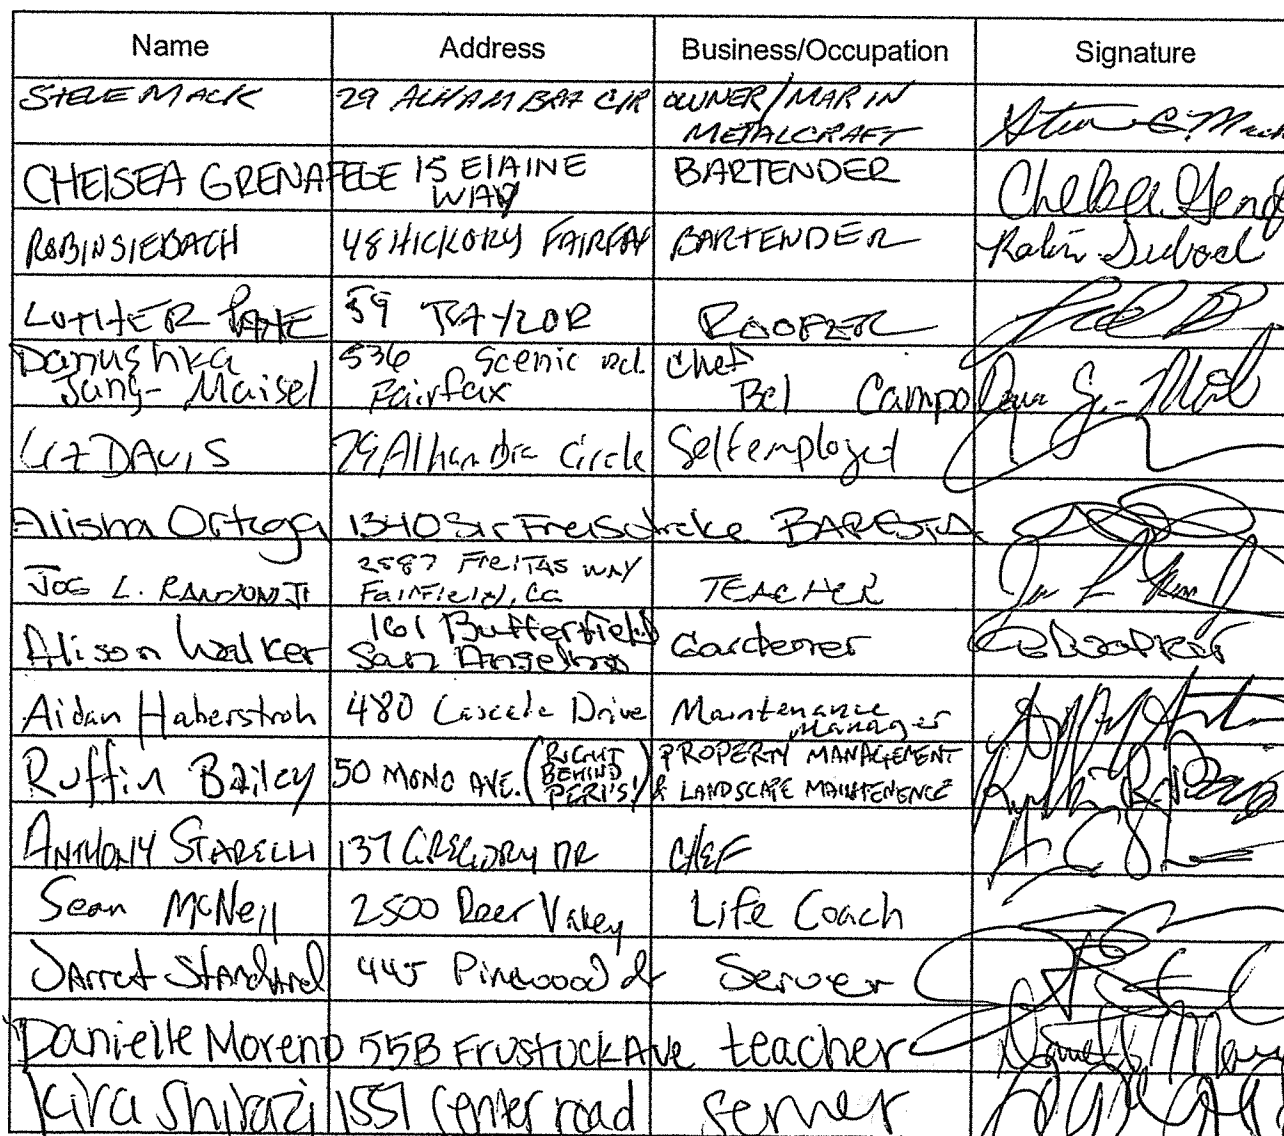 Name Address Business/Occupation Signature
STEVE MACK 29 ALHAMBRA CIR OWNER/MARIN
METALCRAFT
CHELSEA GRENAFEGE 15 ELAINE BARTENDER
WAY
ROBIN SIEBACH 48 HICKORY FAIRFAX BARTENDER Robin
LUTHER PATE 59 TAYLOR ROOFER
Danushka 536 Scenic rd. Chef
Jang-Maisel Fairfax Bel Campo
LIZ DAVIS 29 Alhambra Circle Self employed
Alisha Ortega 1340 Sir Francis BARESTA
JOE L. 2587 FREITAS WAY TEACHER
FAIRFIELD, Ca
Alison Walker 161 Butterfield Gardener
San Anselmo
Aidan Haberstroh 480 Cascade Drive Maintenance
Manager
Ruffin Bailey 50 MONO AVE. (RIGHT BEHIND PERI'S!) PROPERTY MANAGEMENT
& LANDSCAPE MAINTENENCE
ANTHONY STARELLI 137 GREGORY DR CHEF
Sean McNeil 2500 Deer Valley Life Coach
Jarret Standard 445 Pinewood dr Server
Danielle Moreno 55B Frustuck Ave teacher
Kira Shirazi 1557 Center road server